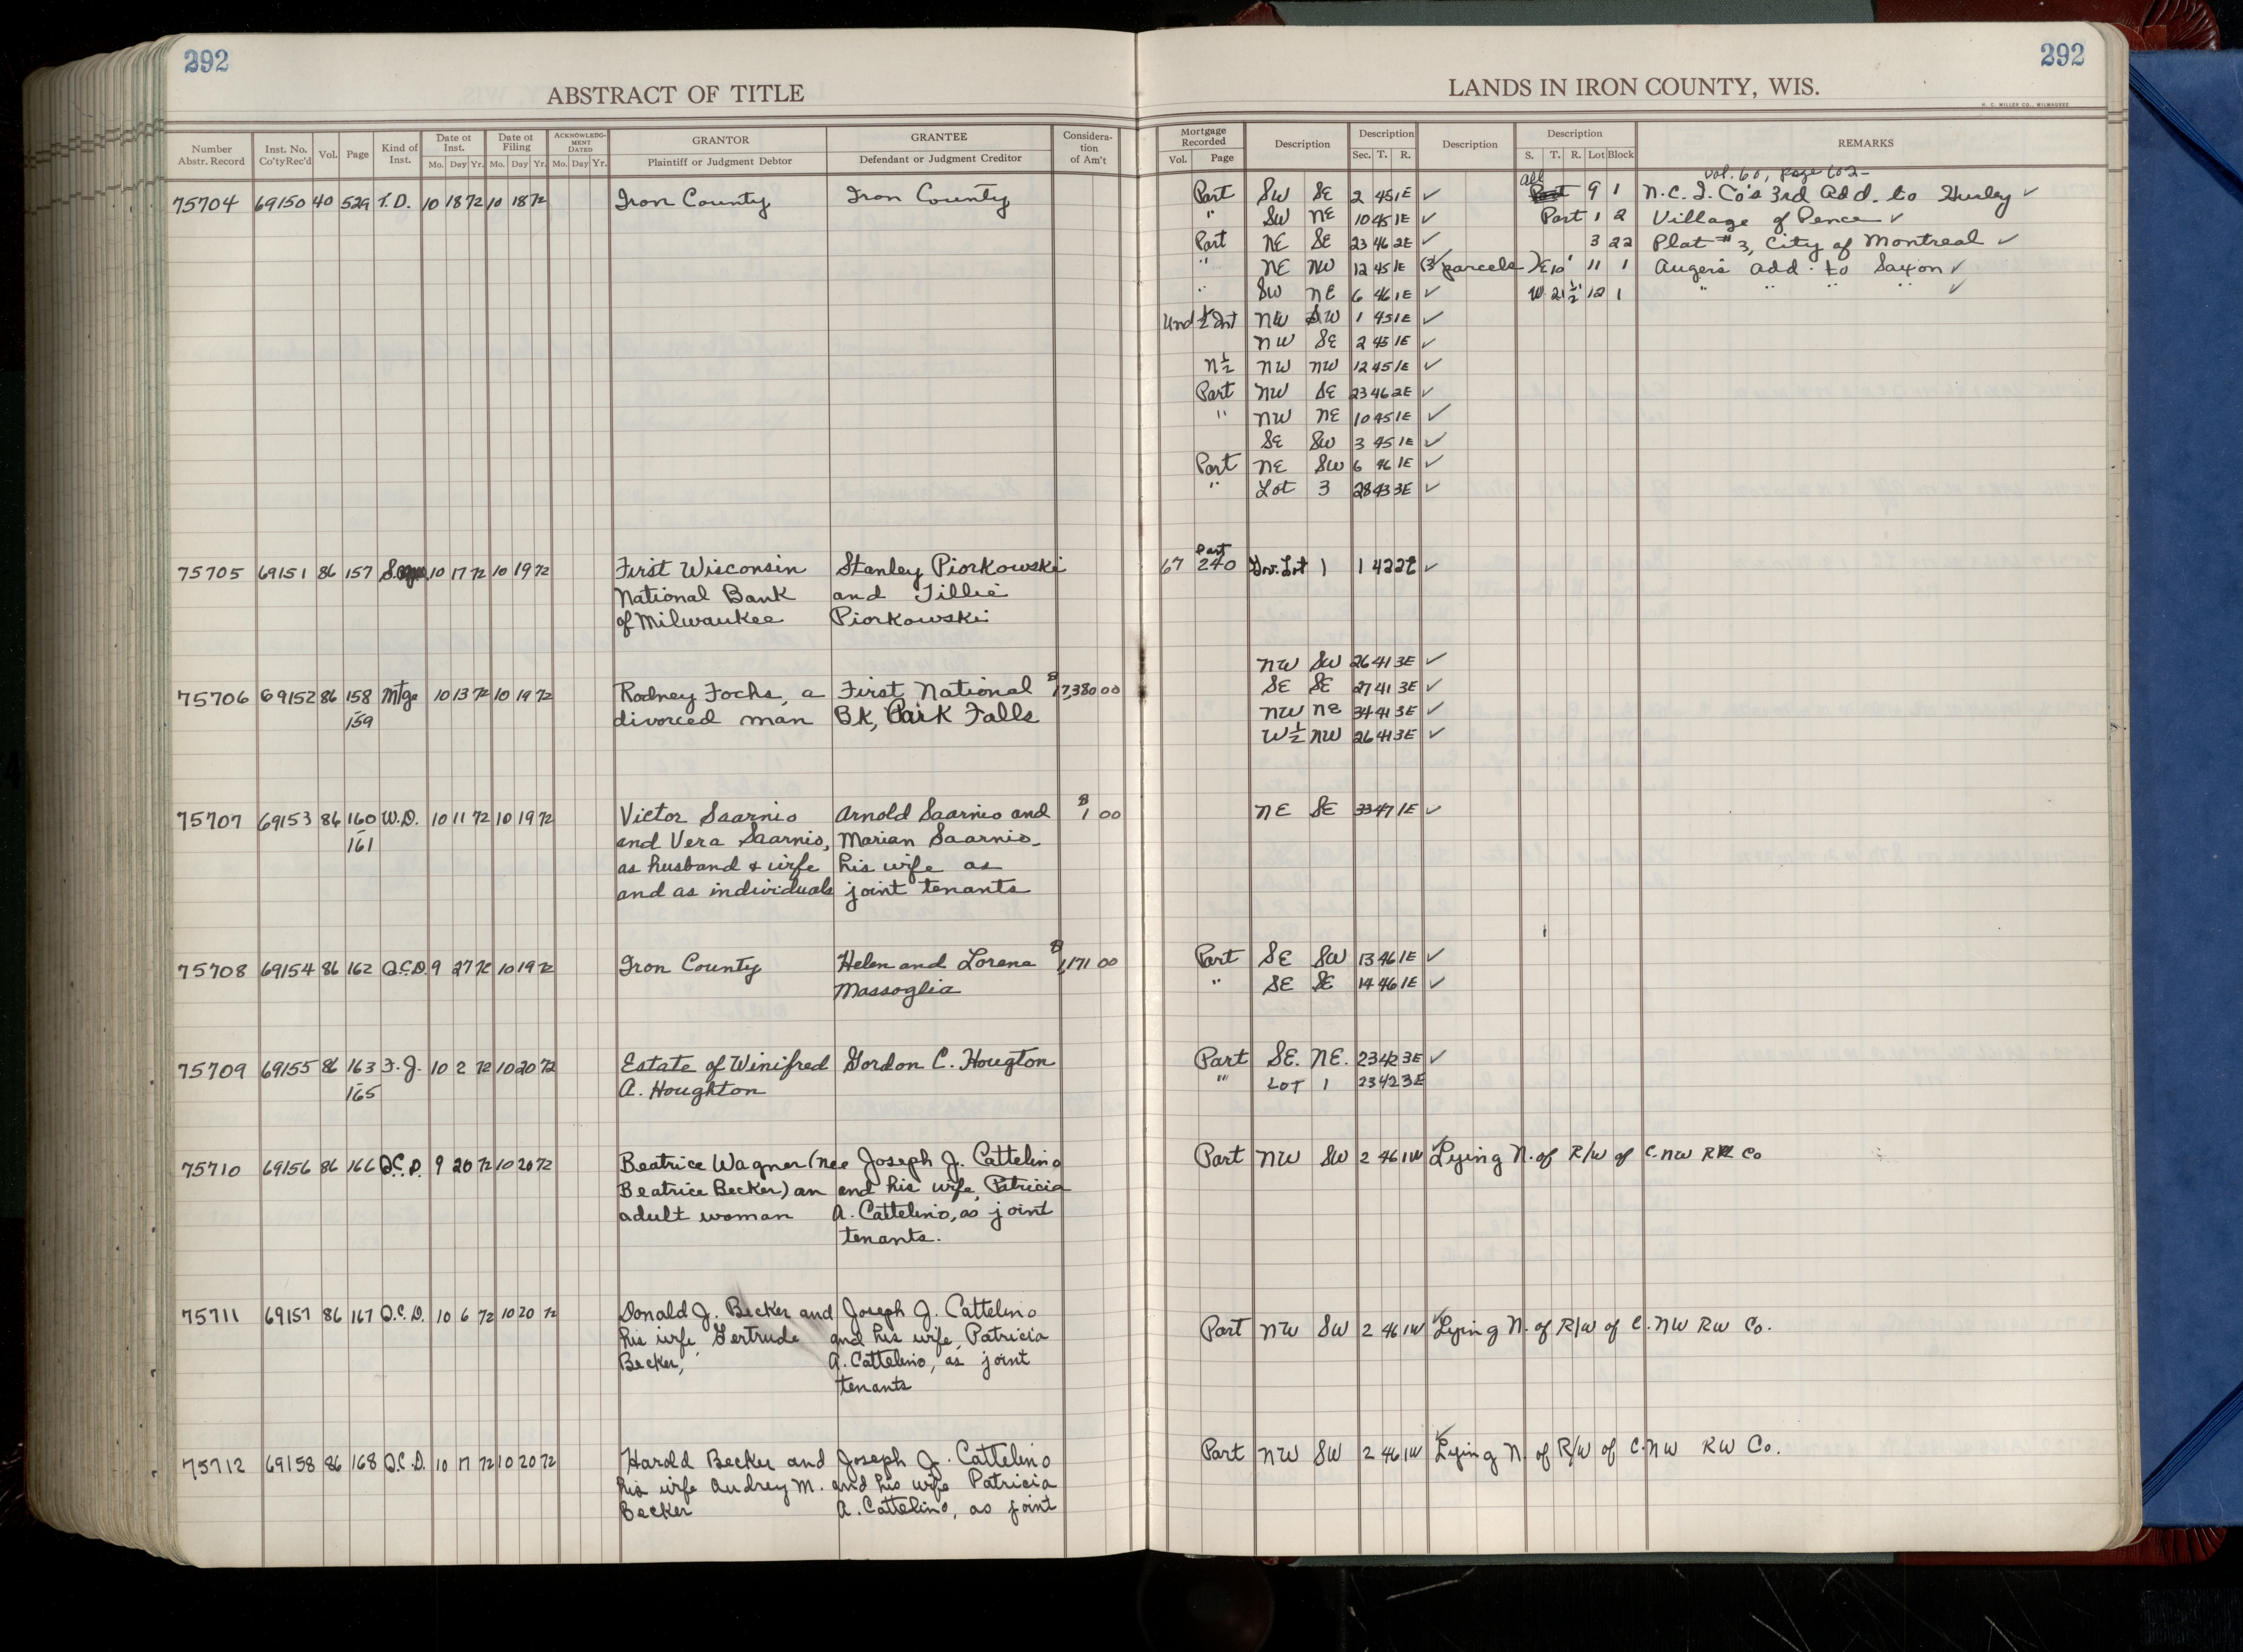 292
292
ABSTRACT OF TITLE
LANDS IN IRON COUNTY, WIS.
H. C. MILLER CO., MILWAUKEE
Number Abstr. Record Inst. No. Co'ty Rec'd Vol. Page Kind of Inst. Date of Inst. Mo. Day Yr. Date of Filing Mo. Day Yr. ACKNOWLEDGMENT DATED Mo. Day Yr. GRANTOR Plaintiff or Judgment Debtor GRANTEE Defendant or Judgment Creditor Consideration of Am't
Mortgage Recorded Vol. Page Description Description Sec. T. R. Description Description S. T. R. Lot Block REMARKS
Vol. 60, page 602
75704 69150 40 529 T.D. 10 18 72 10 18 72 Iron County Iron County Part SW SE 2 45 1E ✓ All 9 1 N.C.I. Co's 3rd Add. to Hurley ✓
" SW NE 10 45 1E ✓ Part 1 2 Village of Pence ✓
Part NE SE 23 46 2E ✓ 3 22 Plat #3, City of Montreal ✓
" NE NW 12 45 1E (3 parcels) E10' 11 1 Auger's Add. to Saxon ✓
" SW NE 6 46 1E ✓ W. 21 1/2' 12 1 " " " " ✓
Und 1/2 Int NW SW 1 45 1E ✓
NW SE 2 45 1E ✓
N 1/2 NW NW 12 45 1E ✓
Part NW SE 23 46 2E ✓
" NW NE 10 45 1E ✓
SE SW 3 45 1E ✓
Part NE SW 6 46 1E ✓
" Lot 3 28 43 3E ✓
75705 69151 86 157 10 17 72 10 19 72 First Wisconsin Stanley Piorkowski 67 240 Part Gov. Lot 1 1 42 2E ✓
National Bank and Tillie
of Milwaukee Piorkowski
NW SW 26 41 3E ✓
75706 69152 86 158 Mtge 10 13 72 10 19 72 Rodney Fochs, a First National $17,380 00 SE SE 27 41 3E ✓
159 divorced man BK, Park Falls NW NE 34 41 3E ✓
W 1/2 NW 26 41 3E ✓
75707 69153 86 160 W.D. 10 11 72 10 19 72 Victor Saarnio Arnold Saarnio and $1 00 NE SE 33 47 1E ✓
161 and Vera Saarnio, Marian Saarnio
as husband & wife his wife as
and as individuals joint tenants
75708 69154 86 162 Q.C.D. 9 27 72 10 19 72 Iron County Helen and Lorena $1,171 00 Part SE SW 13 46 1E ✓
Massoglia " SE SE 14 46 1E ✓
75709 69155 86 163 F.J. 10 2 72 10 20 72 Estate of Winifred Gordon C. Hougton Part SE. NE. 23 42 3E ✓
165 A. Houghton " LOT 1 23 42 3E
75710 69156 86 166 Q.C.D. 9 20 72 10 20 72 Beatrice Wagner (nee Joseph J. Cattelino Part NW SW 2 46 1W Lying N. of R/W of C.NW RR Co
Beatrice Becker) an and his wife, Patricia
adult woman A. Cattelino, as joint
tenants.
75711 69157 86 167 Q.C.D. 10 6 72 10 20 72 Donald J. Becker and Joseph J. Cattelino
his wife Gertrude and his wife, Patricia Part NW SW 2 46 1W Lying N. of R/W of C.NW RW Co.
Becker, A. Cattelino, as joint
tenants
75712 69158 86 168 Q.C.D. 10 17 72 10 20 72 Harold Becker and Joseph J. Cattelino Part NW SW 2 46 1W Lying N. of R/W of C.NW RW Co.
his wife Audrey M. and his wife Patricia
Becker A. Cattelino, as joint